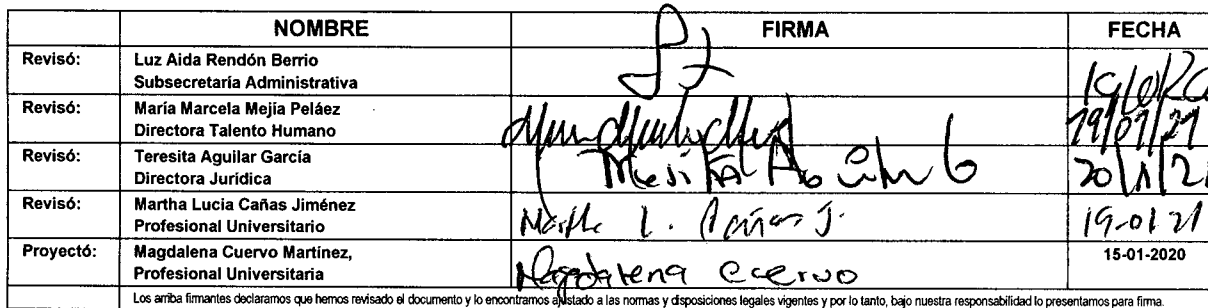 NOMBRE FIRMA FECHA
Revisó: Luz Aida Rendón Berrio
Subsecretaría Administrativa
Revisó: María Marcela Mejía Peláez 19/01/21
Directora Talento Humano
Revisó: Teresita Aguilar García
Directora Jurídica
Revisó: Martha Lucia Cañas Jiménez
Profesional Universitario Martha L. Cañas J. 19-01-21
Proyectó: Magdalena Cuervo Martínez, 15-01-2020
Profesional Universitaria Magdalena Cuervo
Los arriba firmantes declaramos que hemos revisado el documento y lo encontramos ajustado a las normas y disposiciones legales vigentes y por lo tanto, bajo nuestra responsabilidad lo presentamos para firma.